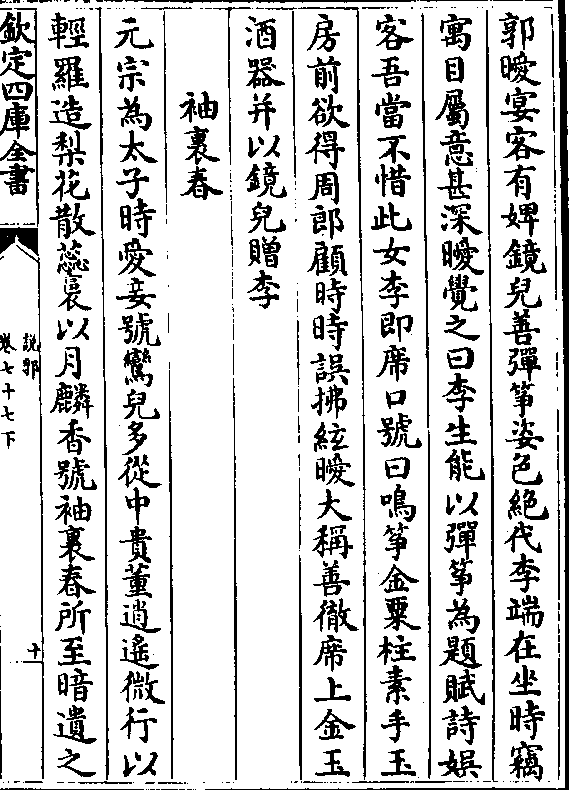 郭曖宴客有婢鏡兒善彈箏姿色絶代李端在坐時竊
寓目屬意甚深曖覺之曰李生能以彈箏為題賦詩娯
客吾當不惜此女李即席口號曰鳴箏金粟柱素手玉
房前欲得周郎顧時時誤拂絃曖大稱善徹席上金玉
酒器并以鏡兒贈李
袖裏春
元宗為太子時愛妾號鸞兒多從中貴董逍遙微行以
輕羅造梨花散蕊裛以月麟香號袖裏春所至暗遺之
欽定四庫全書
說郛
卷七十七下
十